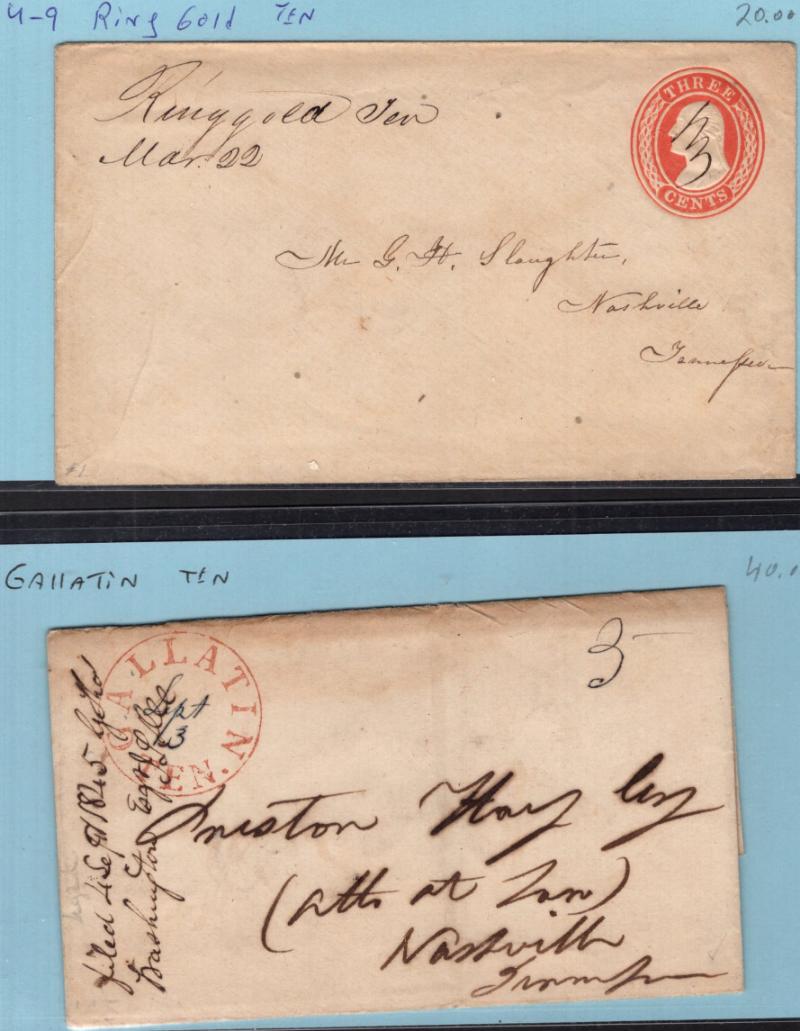 U-9 Ring Gold TEN
20.00
Ringgold Ten
Mar. 22
THREE
CENTS
3
Mr G. H. Slaughter,
Nashville
Tennessee
#1
GALLATIN TEN
40.0
GALLATIN TEN.
Sept
3
5
filed 4 Sept 1845
Washington Esqr
Preston Hay Esq
(Atto at Law)
Nashville
Tennessee